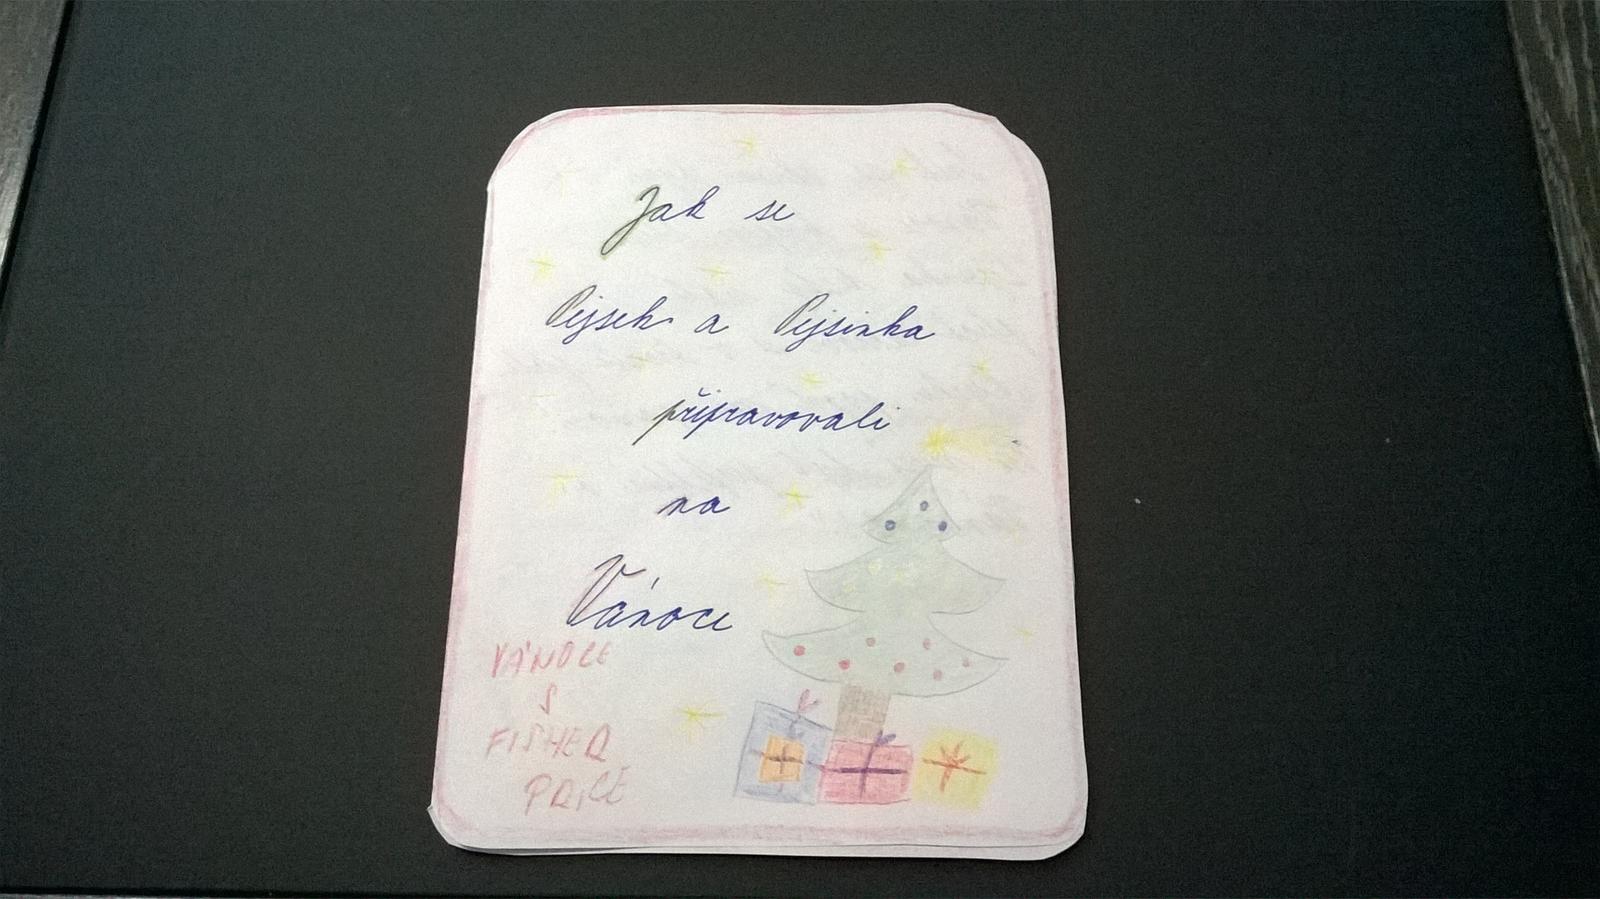 Jak se
Pejsek a Pejsinka
připravovali
na
Vánoce
VÁNOCE
S
FISHER
PRICE